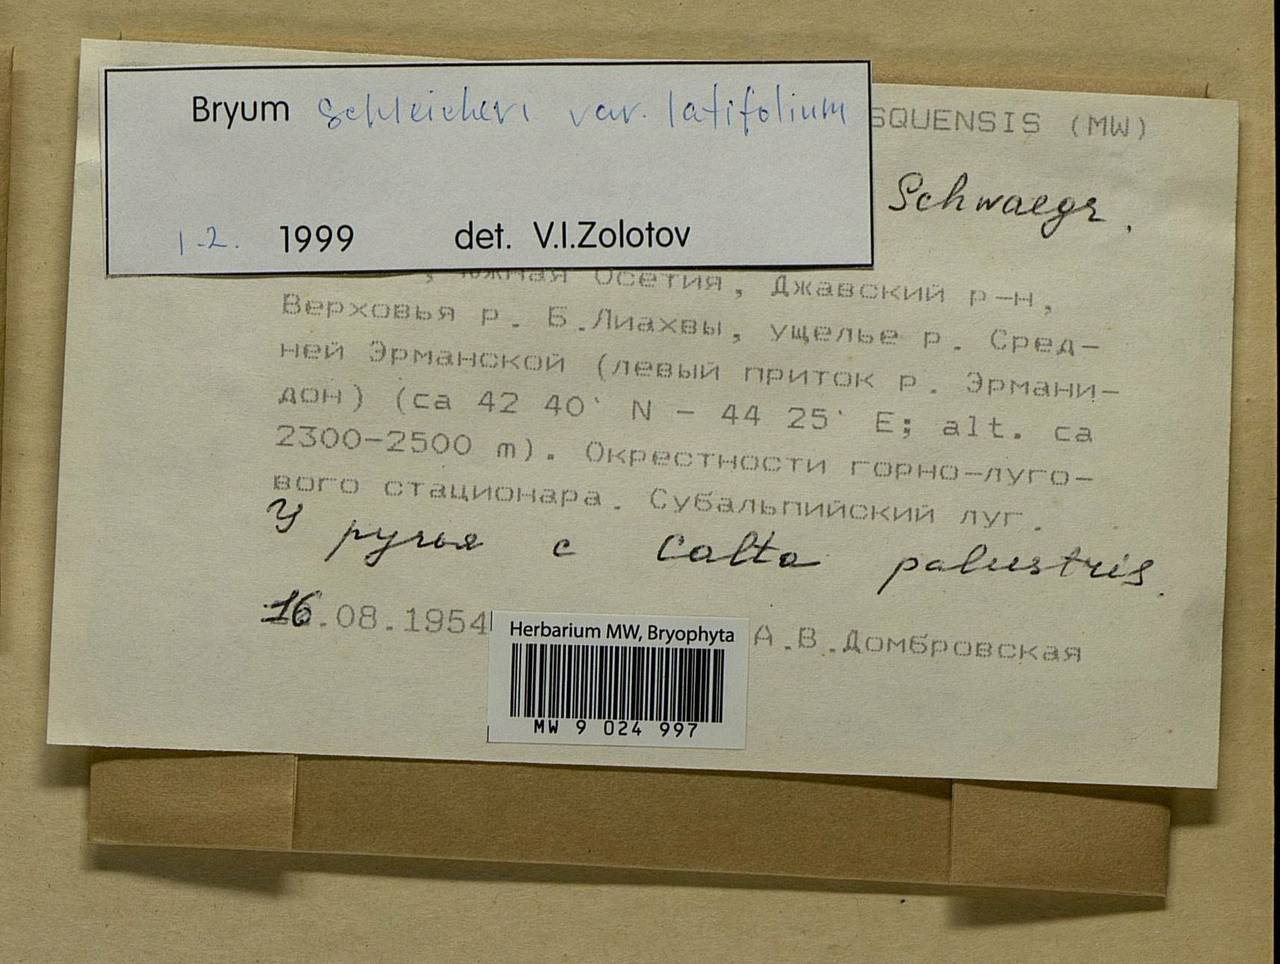 Bryum Schleicheri var. latifolium
SQUENSIS (MW)
Schwaegr.
1.2. 1999 det. V.I.Zolotov
, Южная Осетия, Джавский р-н,
Верховья р. Б.Лиахвы, ущелье р. Сред-
ней Эрманской (левый приток р. Эрмани-
дон) (ca 42 40' N - 44 25' E; alt. ca
2300-2500 m). Окрестности горно-луго-
вого стационара. Субальпийский луг.
У ручья с Calta palustris.
16.08.1954 А.В.Домбровская
Herbarium MW, Bryophyta
MW 9 024 997